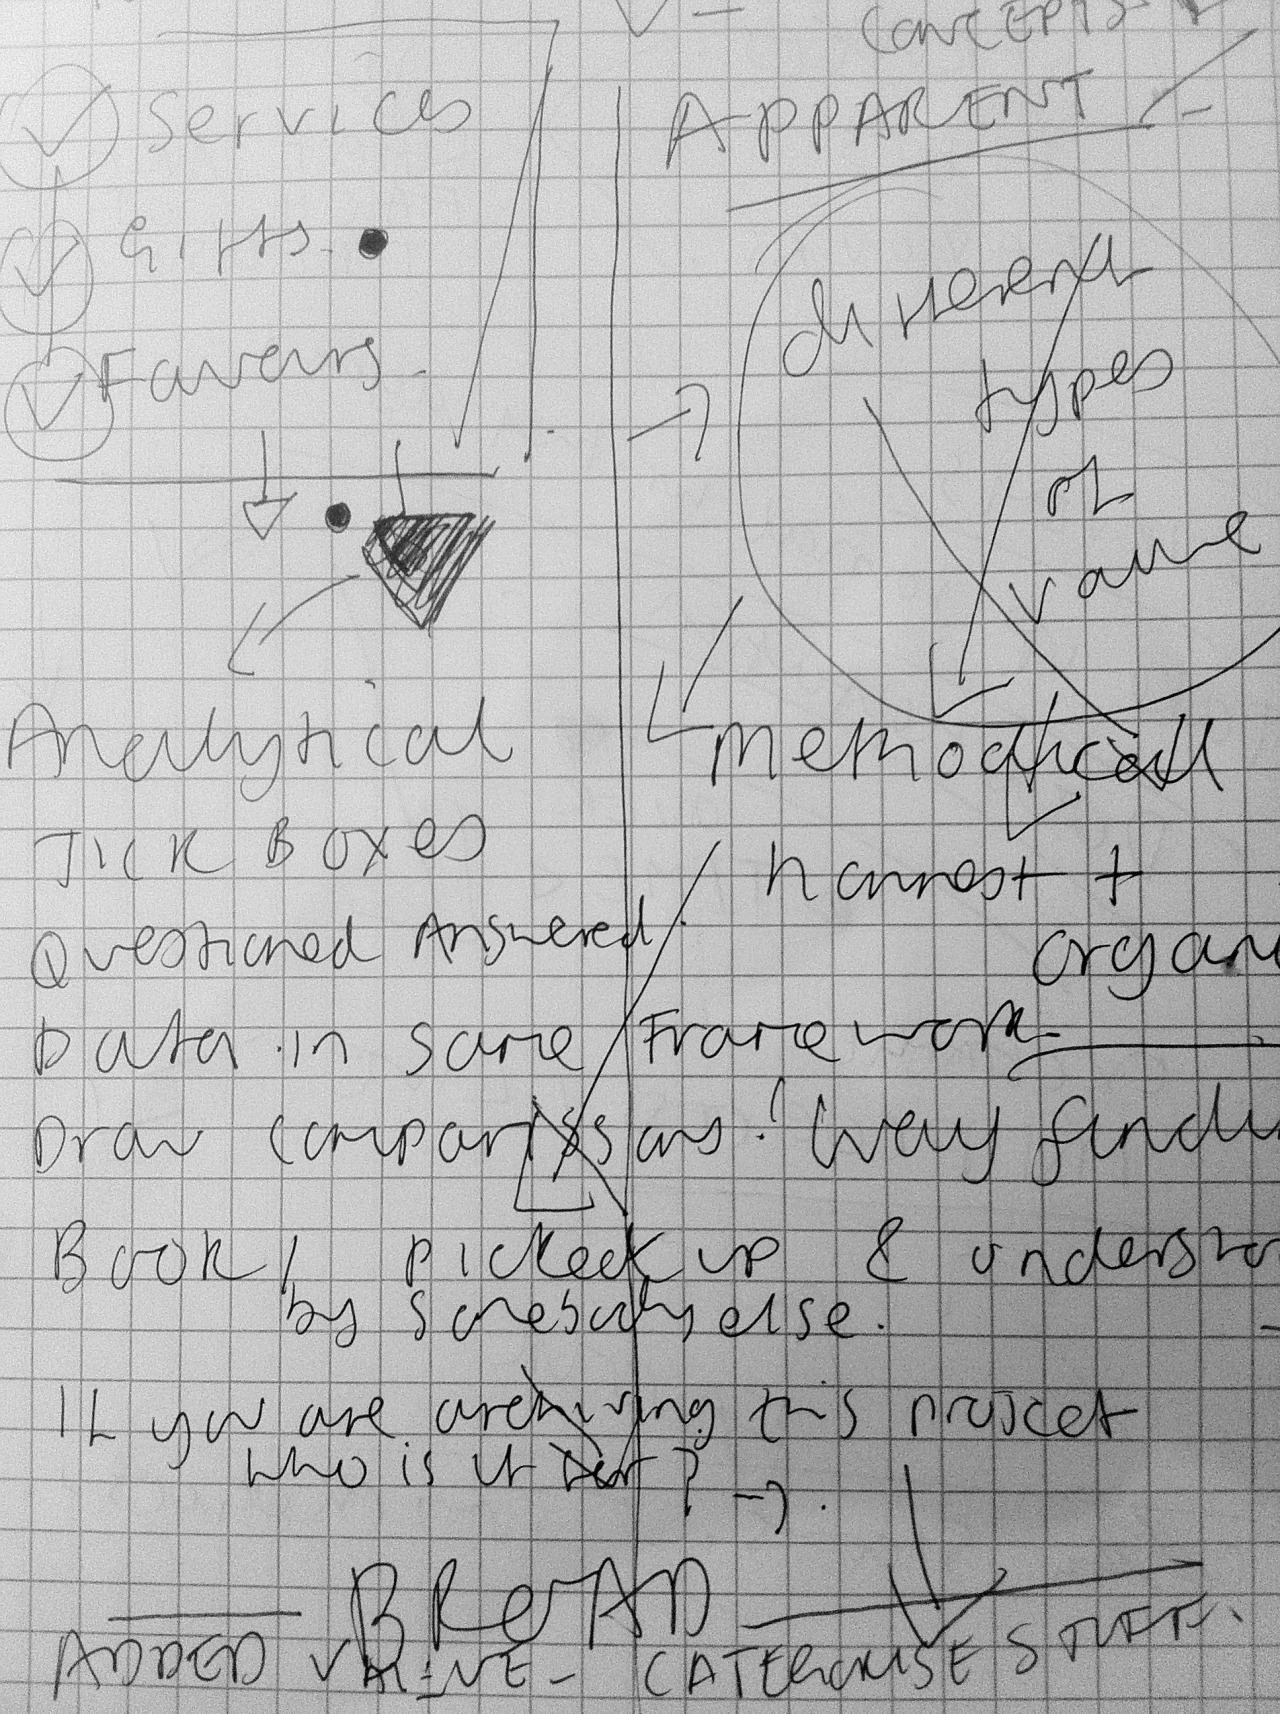 CONCEPTS
APPARENT
Services
Gifts.
Favours.
different
types
of
value
Analytical
Methodical
TICK BOXES
honest +
Questioned Answered.
organ
Data in same Framework
Draw comparissons! Way findi
Book, picked up & understo
by somebody else.
If you are archiving this project
who is it for? →.
BROAD
ADDED VALUE - CATEGORISE STUFF.